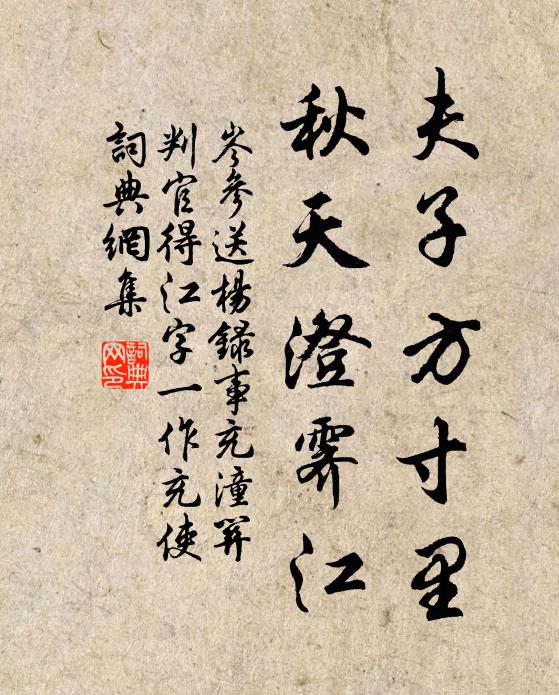 夫子方寸里
秋天澄霽江
岑參送楊錄事充潼關
判官得江字一作充使
詞典網集
詞典网印